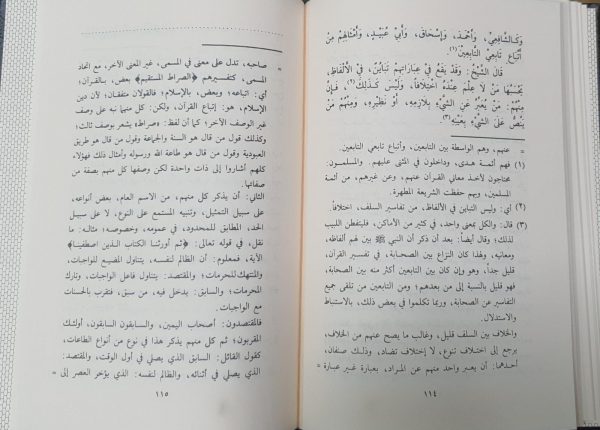 وَكَالشَّافِعِيِّ، وَأَحْمَدَ، وَإِسْحَاقَ، وَأَبِي عُبَيْدٍ، وَأَمْثَالِهِمْ مِنْ
أَتْبَاعِ تَابِعِي التَّابِعِينَ(١)
قَالَ الشَّيْخُ: وَقَدْ يَقَعُ فِي عِبَارَاتِهِمْ تَبَايُنٌ، فِي الْأَلْفَاظِ،
يَحْسَبُهَا مَنْ لَا عِلْمَ عِنْدَهُ اخْتِلَافاً، وَلَيْسَ كَذَلِكَ(٢)، فَإِنَّ
مِنْهُمْ: مَنْ يُعَبِّرُ عَنِ الشَّيْءِ بِلَازِمِهِ، أَوْ نَظِيرِهِ، وَمِنْهُمْ مَنْ
يَنُصُّ عَلَى الشَّيْءِ بِعَيْنِهِ(٣).
= عنهم، وهم الواسطة بين التابعين، وأتباع تابعي التابعين.
(١) فهم أئمة هدى، وداخلون في المثنى عليهم. والمسلمون:
محتاجون لأخذ معاني القرآن عنهم، وعن غيرهم، من أئمة
المسلمين، وبهم حفظت الشريعة المطهرة.
(٢) أي: وليس التباين في الألفاظ، من تفاسير السلف، اختلافاً.
(٣) قال: والكل بمعنى واحد، في كثير من الأماكن، فليتفطن اللبيب
لذلك؛ وقال أيضاً: بعد أن ذكر أن النبي ﷺ بين لهم ألفاظه،
ومعانيه، ولهذا كان النزاع بين الصحابة، في تفسير القرآن،
قليل جداً، وهو وإن كان بين التابعين أكثر منه بين الصحابة،
فهو قليل بالنسبة إلى من بعدهم؛ ومن التابعين من تلقى جميع
التفاسير عن الصحابة، وربما تكلموا في بعض ذلك، بالاستنباط
والاستدلال.
والخلاف بين السلف قليل، وغالب ما يصح عنهم من الخلاف،
يرجع إلى اختلاف تنوع، لا اختلاف تضاد، وذلك صنفان،
أحدهما: أن يعبر واحد منهم عن المراد، بعبارة غير عبارة =
١١٤
= صاحبه، تدل على معنى في المسمى، غير المعنى الآخر، مع اتحاد
المسمى، كتفسيرهم ﴿الصراط المستقيم﴾ بعض، بالقرآن؛
أي: اتباعه؛ وبعض، بالإسلام؛ فالقولان متفقان؛ لأن دين
الإسلام، هو: إتباع القرآن، ولكن: كل منهما نبه على وصف
غير الوصف الآخر؛ كما أن لفظ: «صراط» يشعر بوصف ثالث؛
وكذلك قول من قال هو السنة والجماعة وقول من قال هو طريق
العبودية وقول من قال هو طاعة الله ورسوله وأمثال ذلك فهؤلاء
كلهم أشاروا إلى ذات واحدة لكن وصفها كل منهم بصفة من
صفاتها.
الثاني: أن يذكر كل منهم، من الاسم العام، بعض أنواعه،
على سبيل التمثيل، وتنبيه المستمع على النوع، لا على سبيل
الحد، المطابق للمحدود، في عمومه، وخصوصه؛ مثاله: ما
نقل، في قوله تعالى: ﴿ثم أورثنا الكتاب الذين اصطفينا﴾
الآية، فمعلوم: أن الظالم لنفسه، يتناول المضيع للواجبات،
والمنتهك للحرمات؛ والمقتصد: يتناول فاعل الواجبات، وتارك
المحرمات؛ والسابق: يدخل فيه، من سبق، فتقرب بالحسنات
مع الواجبات.
فالمقتصدون: أصحاب اليمين، والسابقون السابقون، أولئك
المقربون؛ ثم كل منهم يذكر هذا في نوع من أنواع الطاعات،
كقول القائل: السابق الذي يصلي في أول الوقت، والمقتصد:
الذي يصلي في أثنائه، والظالم لنفسه: الذي يؤخر العصر إلى =
١١٥